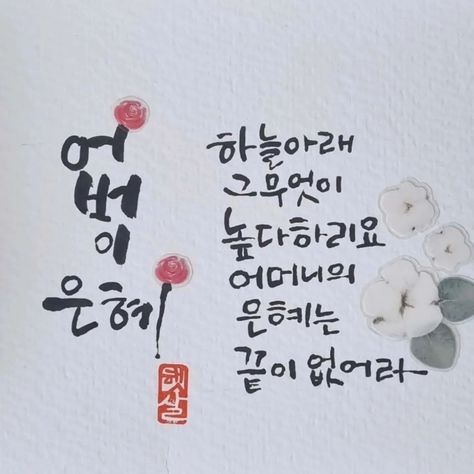 어
버
이
은혜
햇살
하늘아래
그무엇이
높다하리요
어머니의
은혜는
끝이 없어라